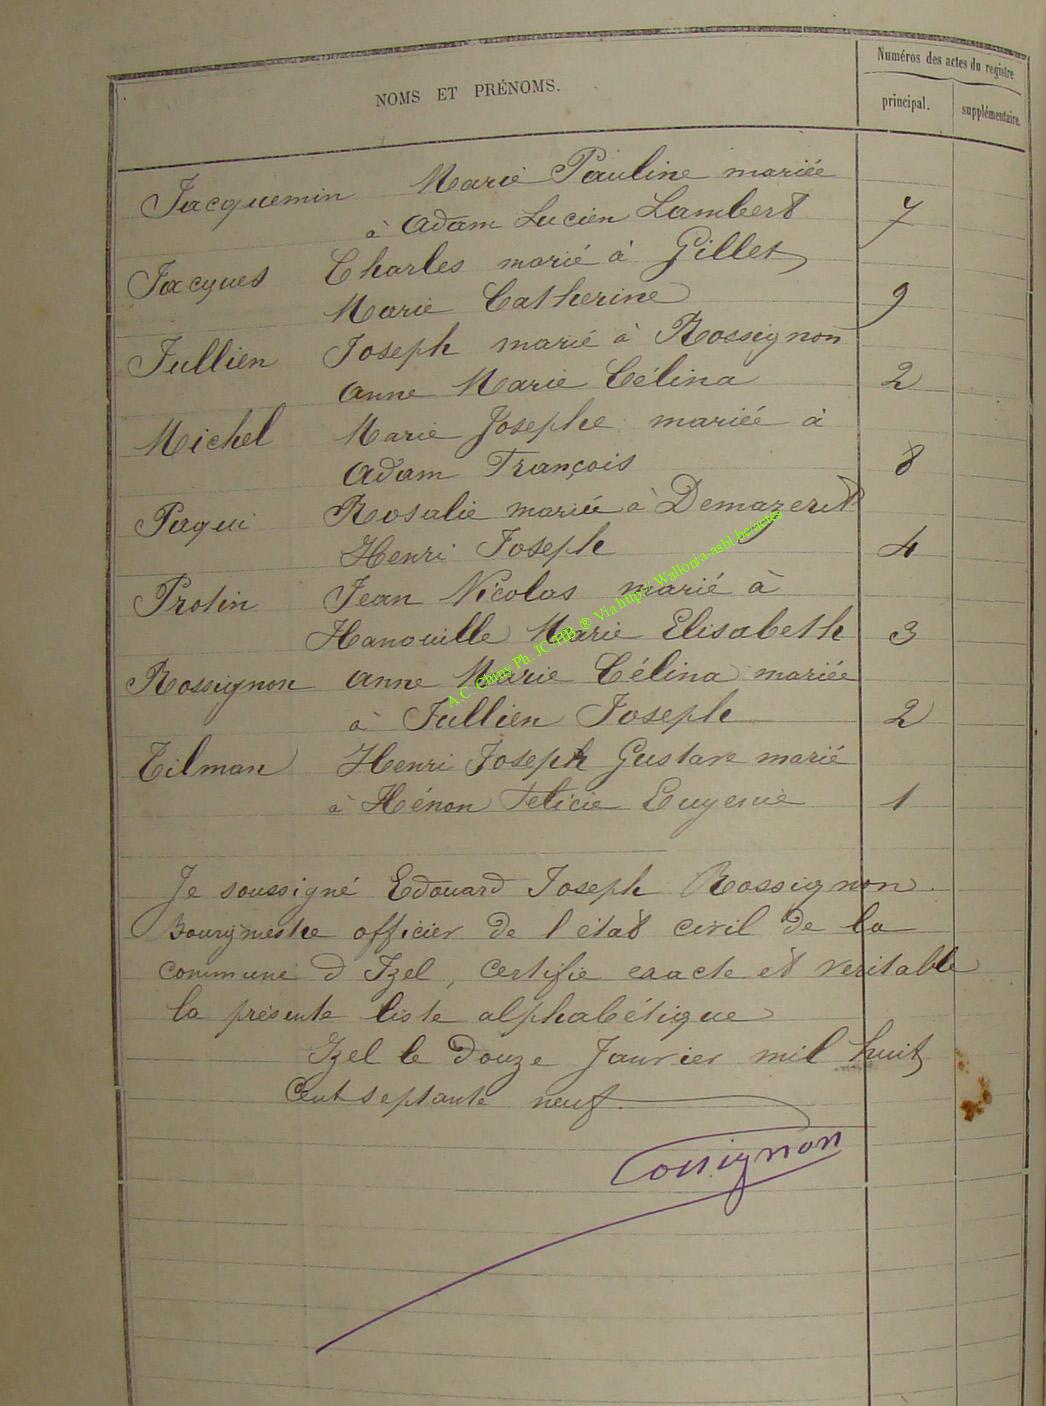 NOMS ET PRÉNOMS.
Numéros des actes du registre
principal.
supplémentaire.
Jacquemin Marie Pauline mariée
à Adam Lucien Lambert 7
Jacques Charles marié à Gillet
Marie Catherine 9
Jullien Joseph marié à Rossignon
Anne Marie Célina 2
Michel Marie Josephe mariée à
Adam François 8
Paqui Rosalie mariée à Demazeret
Henri Joseph 4
Protin Jean Nicolas marié à
Hanouille Marie Elisabeth 3
Rossignon Anne Marie Célina mariée
à Jullien Joseph 2
Tilman Henri Joseph Gustave marié
à Hénon Felicie Eugenie 1
Je soussigné Edouard Joseph Rossignon
Bourgmestre officier de l état civil de la
commune d Izel, certifie exacte et veritable
la présente liste alphabétique
Izel le douze Janvier mil huit
cent septante neuf.
Rossignon
A.C. Chiny Ph. JC/HB ® Via http:// Wallonia-asbl.be/actes